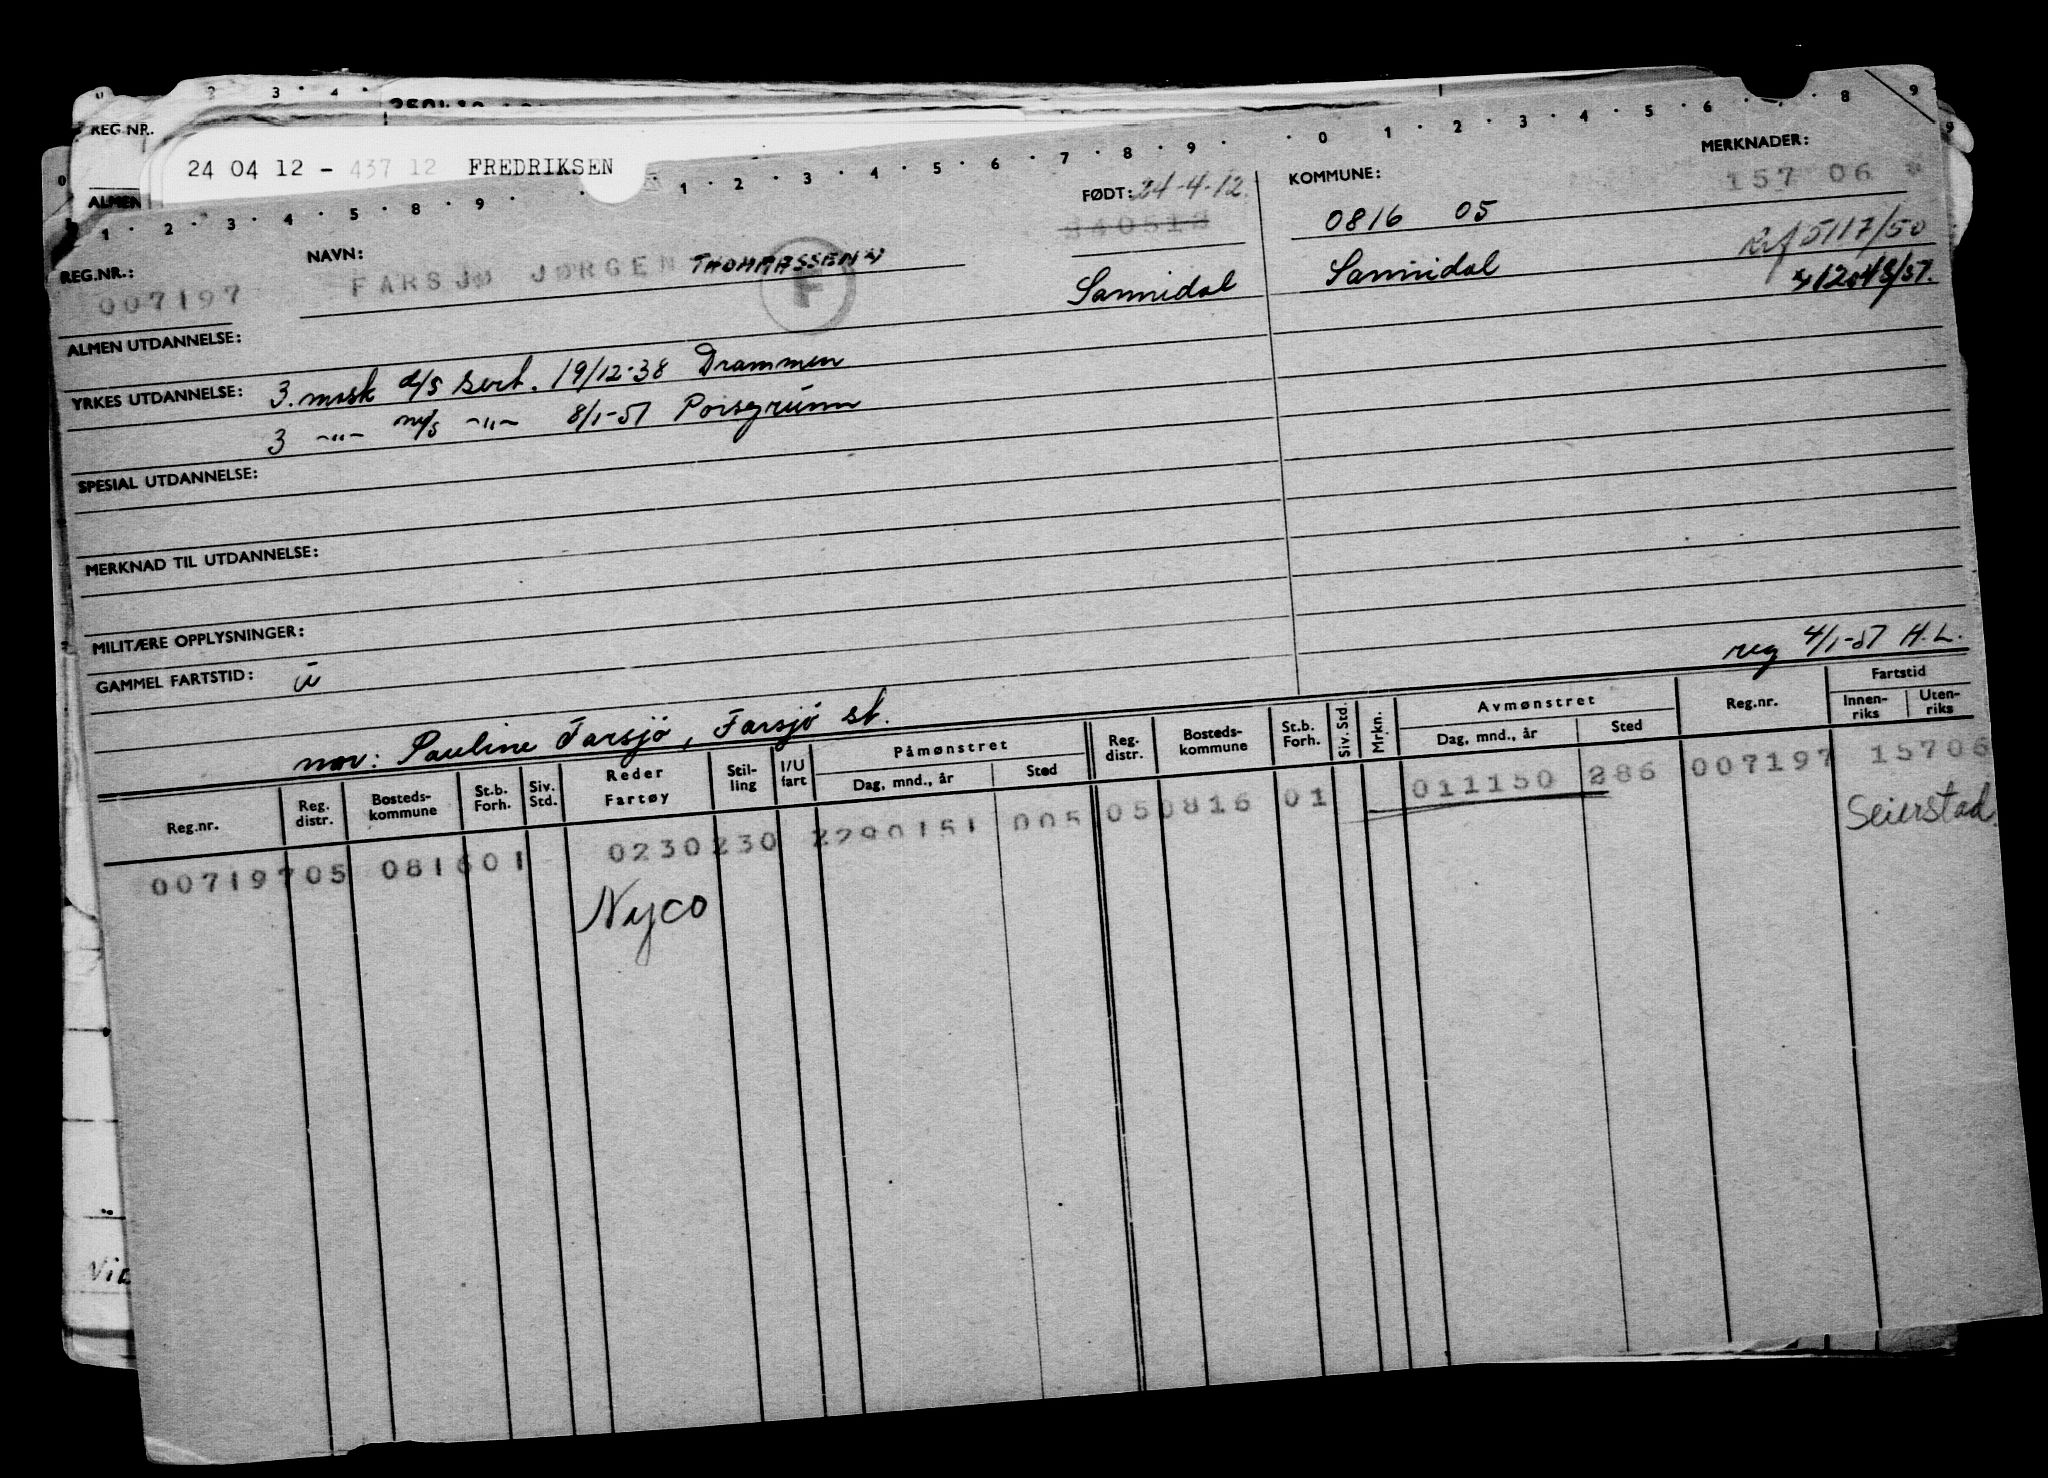 REG.NR.
24 04 12 - 437 12 FREDRIKSEN
ALMEN
0 1 2 3 4 5 6 7 8 9
1 2 3 4 5 8 9 1 2 3 4 5 6 7 8 9
MERKNADER:
157 06 *
FØDT: 24-4-12.
KOMMUNE:
340512
0816 05
5117/50
REG.NR.: 007197
NAVN: FARSJØ JØRGEN THOMASSEN F
Sannidal
Sannidal
ALMEN UTDANNELSE:
YRKES UTDANNELSE: 3. mask d/s sert. 19/12-38 Drammen
3 -"- m/s -"- 8/1-51 Porsgrunn
SPESIAL UTDANNELSE:
MERKNAD TIL UTDANNELSE:
MILITÆRE OPPLYSNINGER:
GAMMEL FARTSTID: u
reg 4/1-51 H.L.
mor: Pauline Farsjö, Farsjö st.
Reg.nr. Reg. distr. Bosteds-kommune St.b. Forh. Siv. Std. Reder Fartøy Stil-ling I/U fart Påmønstret Dag, mnd., år Sted Reg. distr. Bosteds-kommune St.b. Forh. Siv. Std. Mrkn. Avmønstret Dag, mnd., år Sted Reg.nr. Fartstid Innen-riks Uten-riks
050816 01 011150 286 007197 15706
Seierstad
00719705 081601 0230230 2290151 005
Nyco